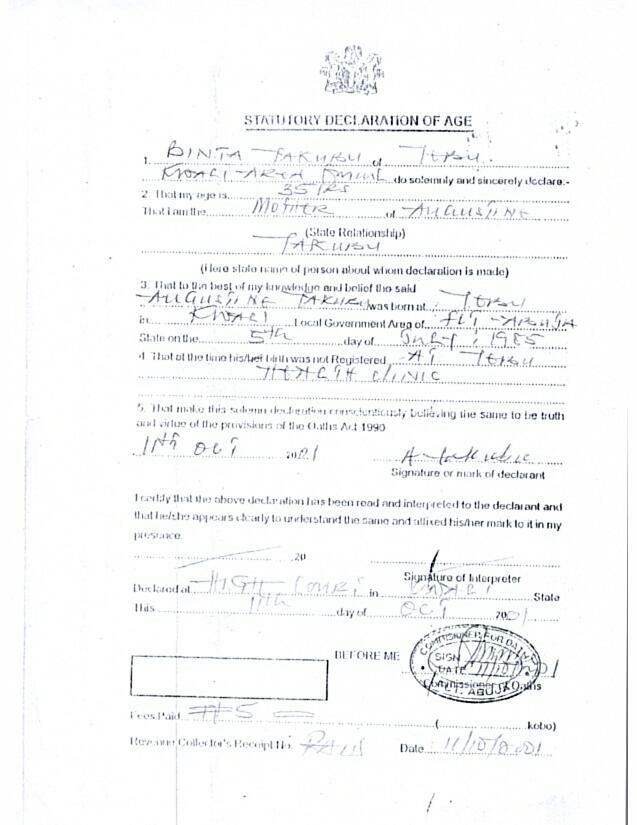 STATUTORY DECLARATION OF AGE
1. BINTA YAKUBU of
KWALI-AREA do solemnly and sincerely declare:-
2. That my age is 35 YRS
That I am the MOTHER of AUGUSTINE
(State Relationship)
YAKUBU
(Here state name of person about whom declaration is made)
3. That to the best of my knowledge and belief the said
AUGUSTINE YAKUBU was born at
in KWALI Local Government Area of FCT-ABUJA
State on the 5th day of JULY, 1985
4. That at the time his/her birth was not Registered AT
HEALTH CLINIC
5. That make this solemn declaration conscientiously believing the same to be truth
and virtue of the provisions of the Oaths Act 1990
11th OCT 2001
Signature or mark of declarant
I certify that the above declaration has been read and interpreted to the declarant and
that he/she appears clearly to understand the same and affixed his/her mark to it in my
presence.
20
Signature of Interpreter
Declared at HIGH COURT in KWALI State
This 11th day of OCT 2001
BEFORE ME
COMMISIONER FOR OATHS
SIGN
DATE 11/10/2001
Commissioner for Oaths
FCT. ABUJA
Fees Paid ₦5 = (kobo)
Revenue Collector's Receipt No. Date 11/10/2001